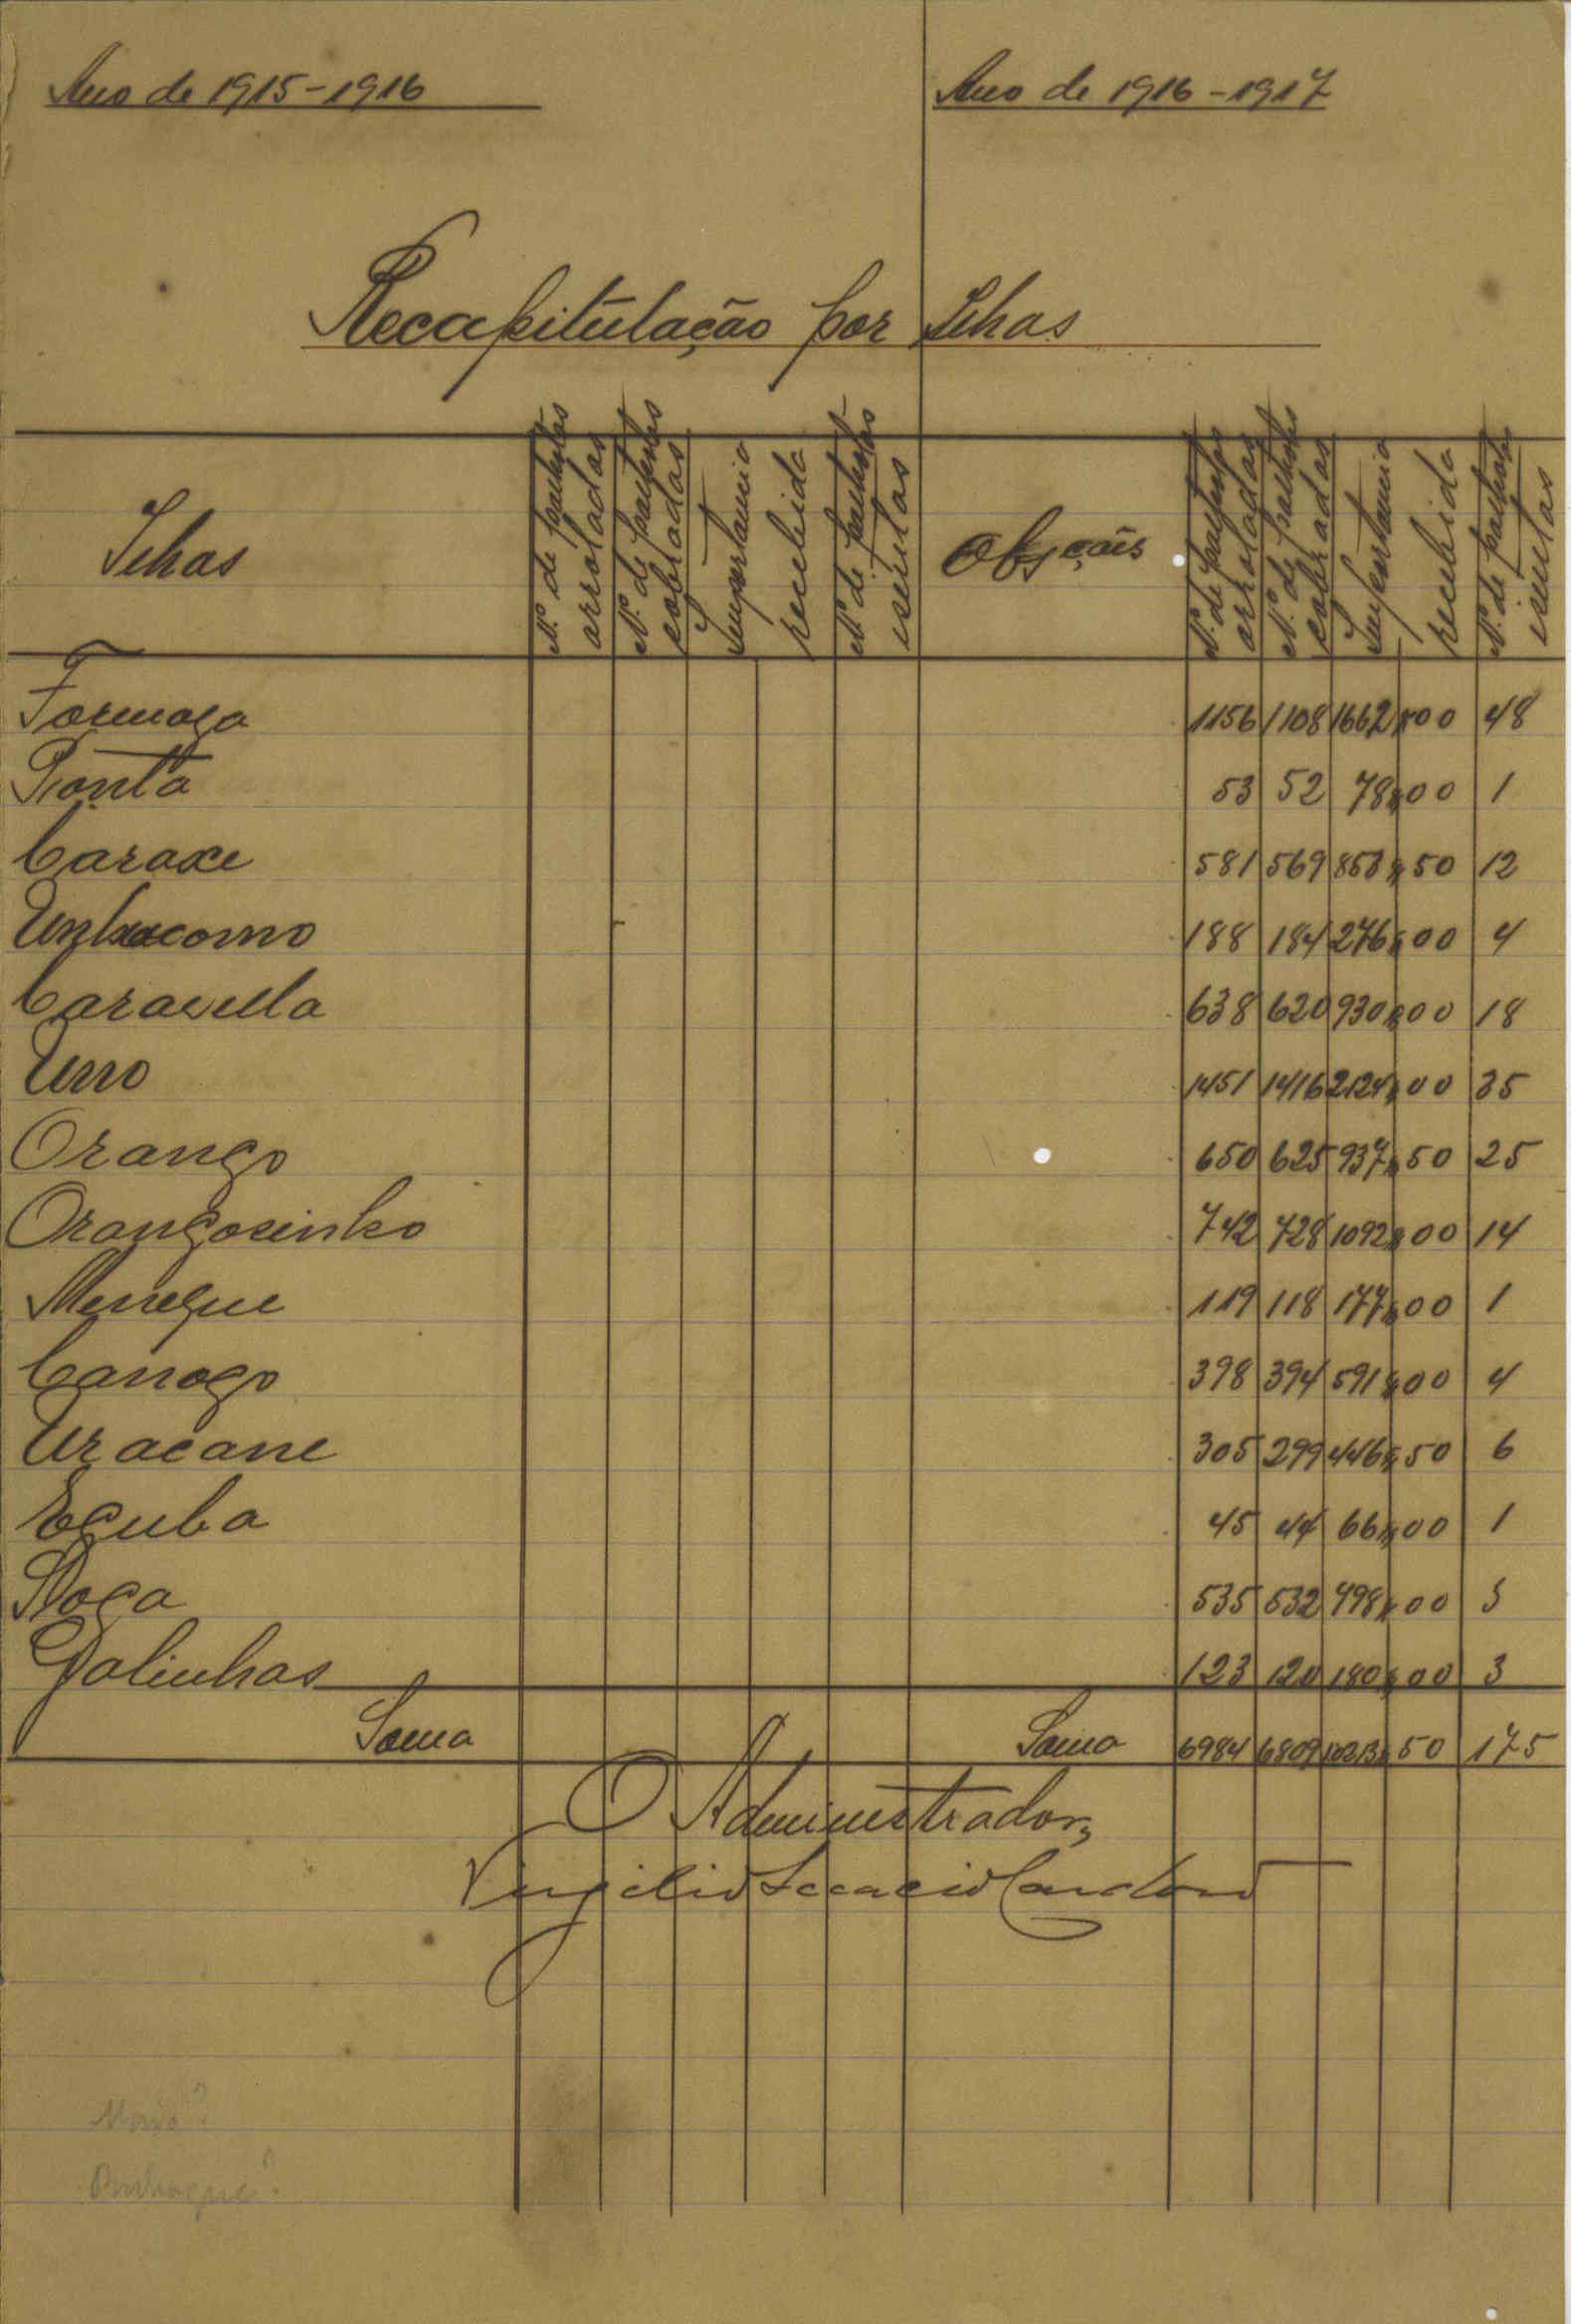 Ano de 1915-1916
Ano de 1916-1917
Recapitulação por Ilhas
Ilhas
N.º de palhotas arroladas
N.º de palhotas cobradas
Importancia recebida
N.º de palhotas isentas
Obsções
N.º de palhotas arroladas
N.º de palhotas cobradas
Importancia recebida
N.º de palhotas isentas
Formosa 1156 1108 1662$00 48
Ponta 53 52 78$00 1
Caraxe 581 569 853$50 12
Unhocomo 188 184 276$00 4
Caravella 638 620 930$00 18
Uno 1451 1416 2124$00 35
Orango 650 625 937$50 25
Orangosinho 742 728 1092$00 14
Meneque 119 118 177$00 1
Canogo 398 394 591$00 4
Uracane 305 299 446$50 6
Eguba 45 44 66$00 1
Roga 535 532 798$00 3
Galinhas 123 120 180$00 3
Soma
Soma 6984 6809 10213$50 175
O Administrador,
Virgilio Acacio Cardoso